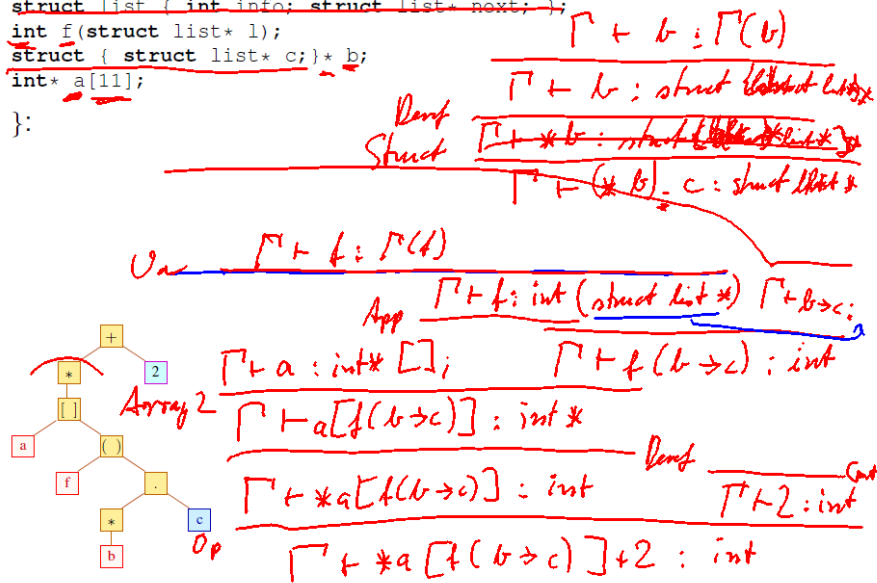 struct list { int info; struct list* next; };
int f(struct list* l);
struct { struct list* c;}* b;
int* a[11];
}:
Γ ⊢ b : Γ(b)
Γ ⊢ b : struct
Deref
Struct Γ ⊢ *b : struct
Γ ⊢ (*b). c : struct list *
Var Γ ⊢ f : Γ(f)
App Γ ⊢ f : int (struct list *) Γ ⊢ b→c :
Γ ⊢ a : int* []; Γ ⊢ f(b→c) : int
Array 2 Γ ⊢ a[f(b→c)] : int *
Deref
Γ ⊢ *a[f(b→c)] : int Γ ⊢ 2 : int
Const
Op Γ ⊢ *a[f(b→c)]+2 : int
+
* 2
[ ]
a ( )
f .
* c
b